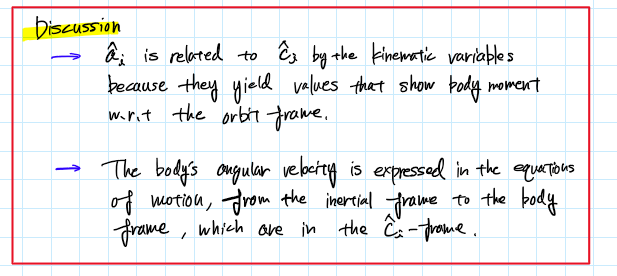 Discussion
→ âᵢ is related to ĉᵢ by the kinematic variables
because they yield values that show body moment
w.r.t the orbit frame.
→ The body's angular velocity is expressed in the equations
of motion, from the inertial frame to the body
frame, which are in the ĉᵢ-frame.